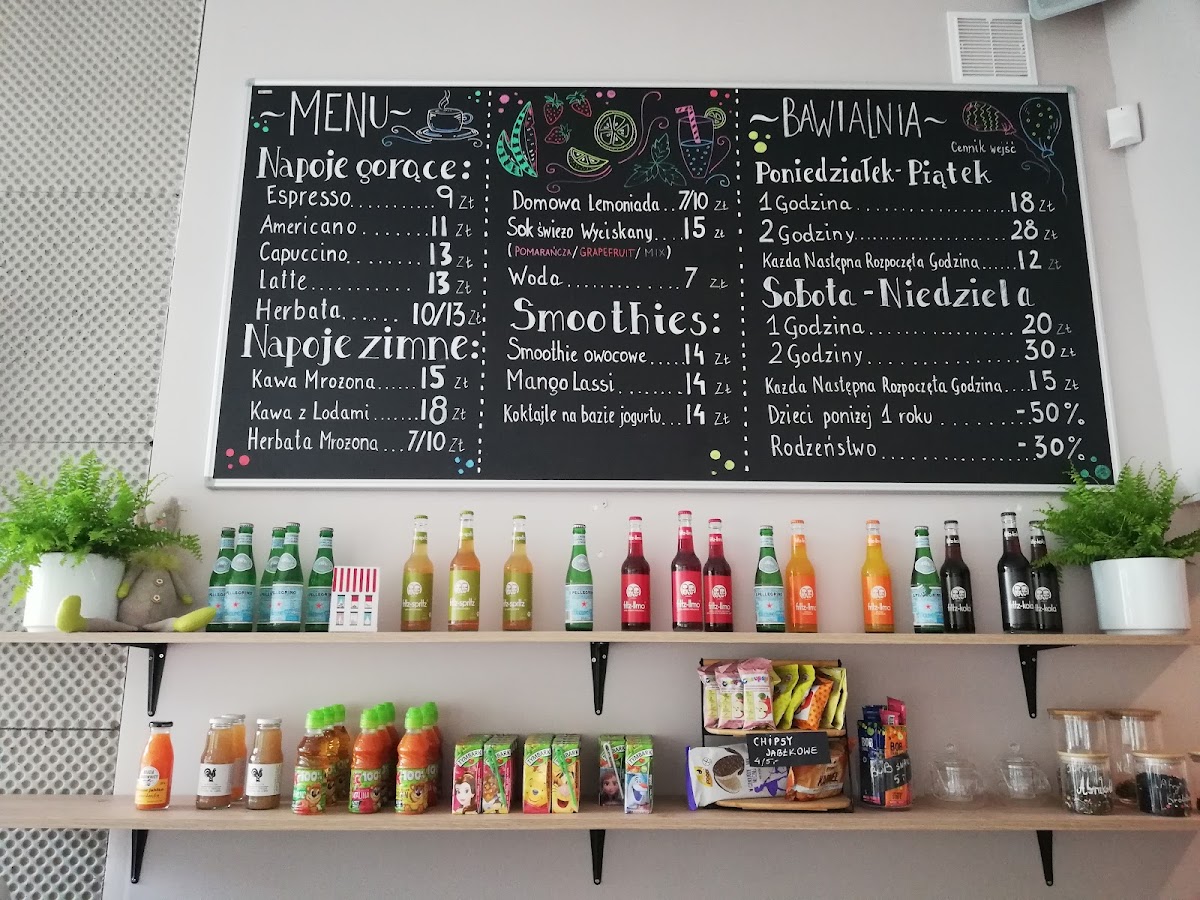 ~MENU~
Napoje gorące:
Espresso..........9 Zł
Americano........11 Zł
Capuccino........13 Zł
Latte............13 Zł
Herbata......10/13 Zł
Napoje zimne:
Kawa Mrożona......15 Zł
Kawa z Lodami.......18 Zł
Herbata Mrożona...7/10 Zł
Domowa Lemoniada..7/10 Zł
Sok świeżo Wyciskany....15 Zł
(POMARAŃCZA/GRAPEFRUIT/MIX)
Woda............7 Zł
Smoothies:
Smoothie owocowe.....14 Zł
Mango Lassi.......14 Zł
Koktajle na bazie jogurtu...14 Zł
~BAWIALNIA~
Cennik wejść
Poniedziałek-Piątek
1 Godzina....................18 Zł
2 Godziny....................28 Zł
Kazda Następna Rozpoczęta Godzina.....12 Zł
Sobota-Niedziela
1 Godzina....................20 Zł
2 Godziny....................30 Zł
Kazda Następna Rozpoczęta Godzina....15 Zł
Dzieci poniżej 1 roku..........-50%
Rodzeństwo..................-30%
S.PELLEGRINO
fritz-spritz
fritz-spritz
fritz-spritz
fritz-limo
fritz-limo
fritz-limo
fritz-limo
fritz-limo
fritz-kola
fritz-kola
fritz-kola
100%
100%
100%
CHIPSY
JABŁKOWE
4/5.-
BOB
BOB